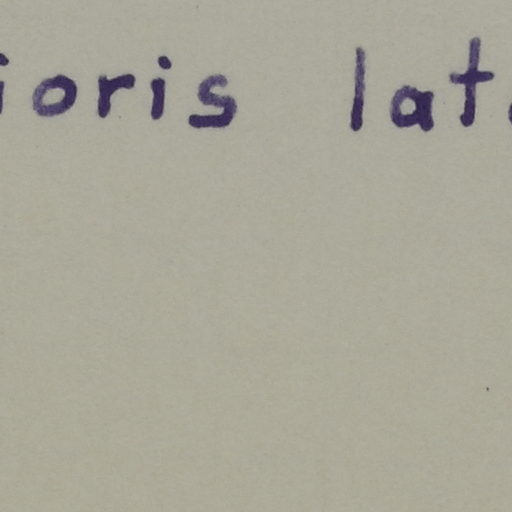 ioris lat